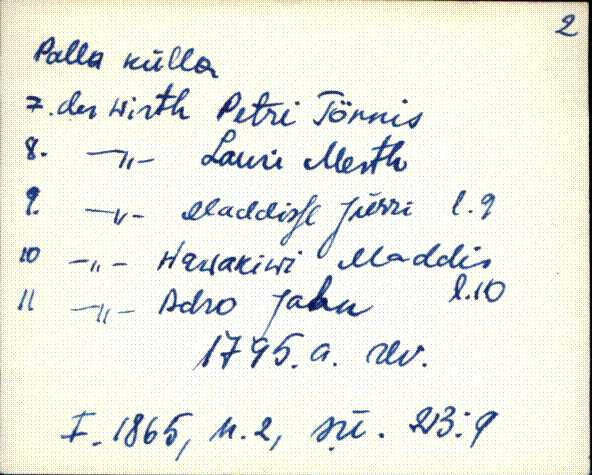 2
Palla külla
7. der Wirth Petri Tönnis
8. —〃— Lauri Merth
9. —〃— Maddisse Jürri l.9
10 —〃— Harrakiwi Maddis
11 —〃— Adro Jahn l.10
1795. a. rev.
F. 1865, n. 2, sü. 213:9